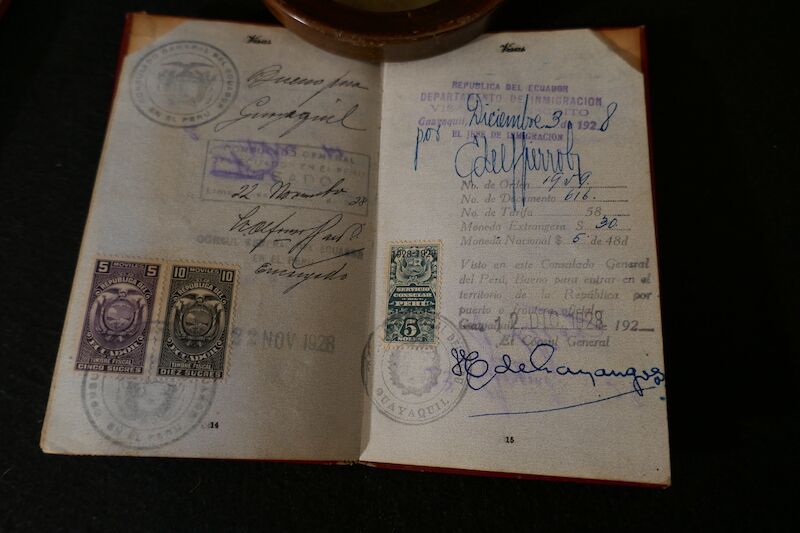 Visas
CONSULADO GENERAL DEL ECUADOR
EN EL PERU
Bueno para
Guayaquil
CONSULADO GENERAL
22 Noviembre 28
CONSUL GRAL. DEL ECUADOR
EN EL PERU
Encargado
5 MOVILES 5
REPUBLICA DEL
ECUADOR
TIMBRE FISCAL
CINCO SUCRES
10 MOVILES 10
REPUBLICA DEL
ECUADOR
TIMBRE FISCAL
DIEZ SUCRES
22 NOV 1928
EN EL PERU
14
Visas
REPUBLICA DEL ECUADOR
DEPARTAMENTO DE INMIGRACION
Guayaquil, Diciembre 3 de 1928
por EL JEFE DE INMIGRACION
No. de Orden 1959
No. de Documento 616.
No. de Tarifa 58
Moneda Extrangera $ 30.
Moneda Nacional $ 5 de 48d
Visto en este Consulado General
del Perú, Bueno para entrar en el
territorio de la República por
puerto o frontera oficial
12 DIC. 1928 192
El Cónsul General
1928-1929
SERVICIO
CONSULAR
PERU
5
SOLES
GUAYAQUIL
15